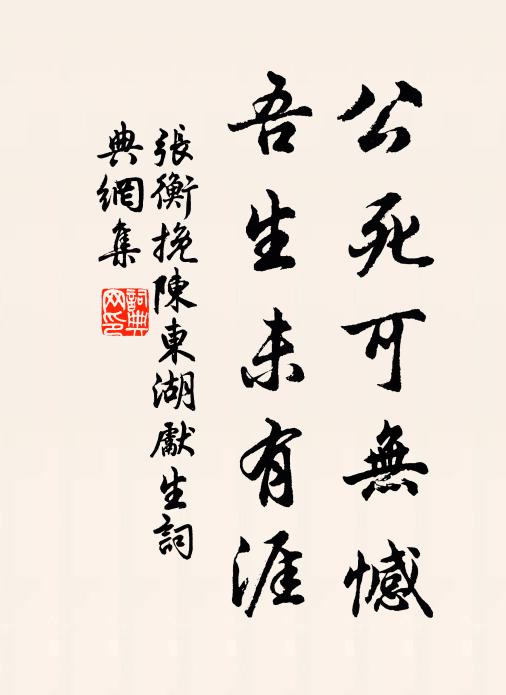 公死可無憾
吾生未有涯
張衡挽陳東湖獻生詞
典網集
詞典
网印